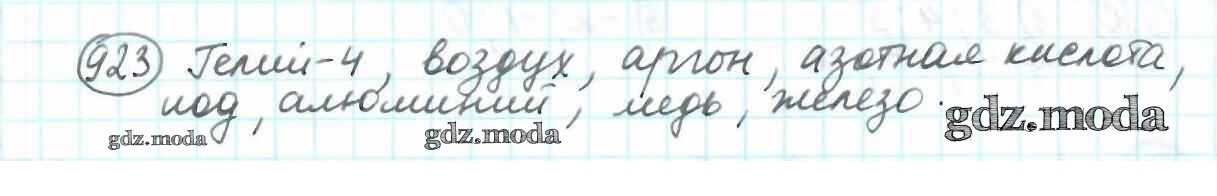 923 Гелий-4, воздух, аргон, азотная кислота,
иод, алюминий, медь, железо.
gdz.moda gdz.moda gdz.moda